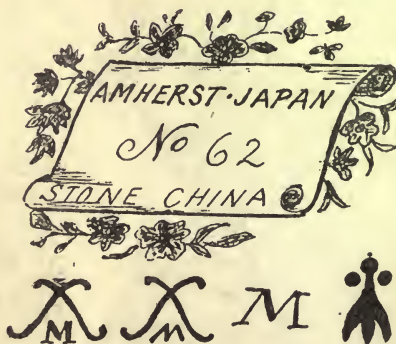 AMHERST·JAPAN
No 62
STONE CHINA
M M M